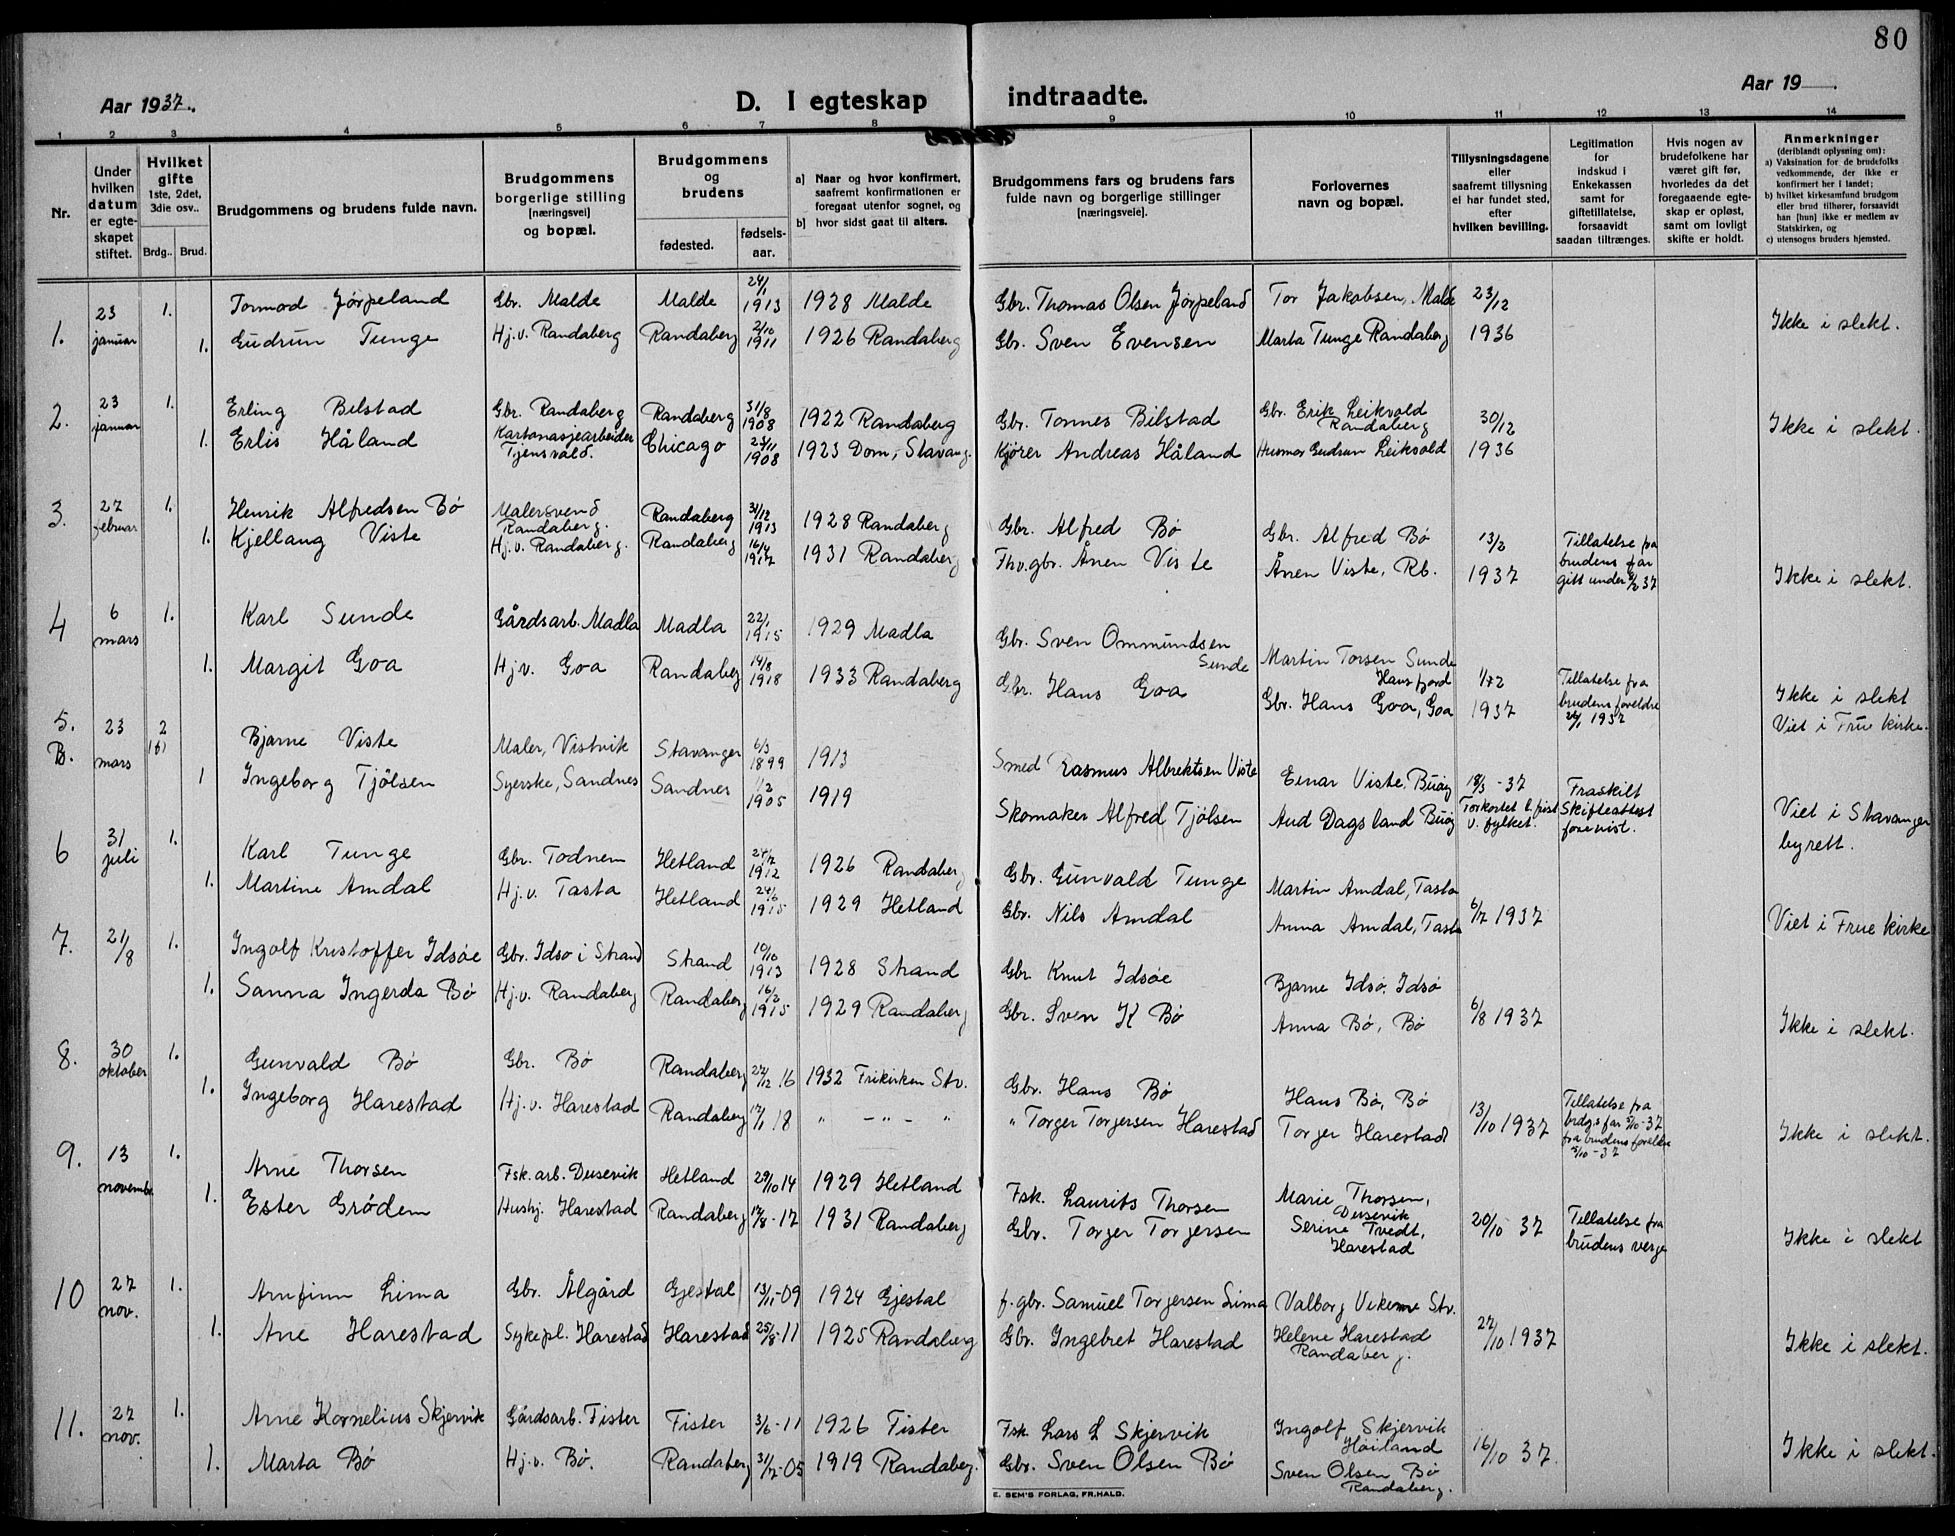 80
Aar 1937.
D. I egteskap indtraadte.
Aar 19
1 2 3 4 5 6 7 8 9 10 11 12 13 14
Nr.
Under hvilken datum er egteskapet stiftet.
Hvilket gifte 1ste, 2det, 3die osv..
Brdg.. Brud.
Brudgommens og brudens fulde navn.
Brudgommens borgerlige stilling [næringsvei] og bopæl.
Brudgommens og brudens
fødested.
fødselsaar.
a) Naar og hvor konfirmert, saafremt konfirmationen er foregaat utenfor sognet, og
b) hvor sidst gaat til alters.
Brudgommens fars og brudens fars fulde navn og borgerlige stillinger [næringsveie].
Forlovernes navn og bopæl.
Tillysningsdagene eller saafremt tillysning ei har fundet sted, efter hvilken bevilling.
Legitimation for indskud i Enkekassen samt for giftetillatelse, forsaavidt saadan tiltrænges.
Hvis nogen av brudefolkene har været gift før, hvorledes da det foregaaende egteskap er opløst, samt om lovligt skifte er holdt.
Anmerkninger (deriblandt oplysning om):
a) Vaksination for de brudefolks vedkommende, der ikke er konfirmert her i landet;
b) hvilket kirkesamfund brudgom eller brud tilhører, forsaavidt han [hun] ikke er medlem av Statskirken, og
c) utensogns bruders hjemsted.
1. 23 januar 1. Tormod Jørpeland Gbr. Malde Malde 24/1 1913 1928 Malde Gbr. Thomas Olsen Jørpeland Tor Jakobsen, Malde 23/12
1. Gudrun Tunge Hj.v. Randaberg Randaberg 2/10 1911 1926 Randaberg Gbr. Sven Evensen Marta Tunge Randaberg 1936 Ikke i slekt.
2. 23 januar 1. Erling Bilstad Gbr. Randaberg Randaberg 31/8 1908 1922 Randaberg Gbr. Tønnes Bilstad Gbr. Erik Leikvold Randaberg 30/12
1. Erlis Håland Kartonasjearbeider Tjensvold. Chicago 23/11 1908 1923 Dom, Stavang. Kjører Andreas Håland Husmor Gudrun Leikvold 1936 Ikke i slekt.
3. 27 februar 1. Henrik Alfredsen Bø Malersvend Randaberg. Randaberg 31/12 1913 1928 Randaberg Gbr. Alfred Bø Gbr. Alfred Bø 13/2
1. Kjellaug Viste Hj.v. Randaberg. Randaberg 16/4 1917 1931 Randaberg Fhv.gbr. Ånen Viste Ånen Viste, Rb. 1937 Tillatelse fra brudens far gitt under 37 Ikke i slekt.
4 6 mars 1. Karl Sunde Gårdsarb. Madla Madla 22/1 1915 1929 Madla Gbr. Sven Ommundsen Sunde Martin Torsen Sunde Hafsfjord
1. Margit Goa Hj.v. Goa Randaberg 14/8 1918 1933 Randaberg Gbr. Hans Goa Gbr. Hans Goa, Goa 1937 Tillatelse fra brudens foreldre 1937 Ikke i slekt Viet i Frue kirke.
5. B. 23 mars 2 Bjarne Viste Maler, Vistvik Stavanger 6/3 1899 1913 Smed Rasmus Albrektsen Viste Einar Viste, Buøy 18/3-37 Fraskilt
1 Ingeborg Tjølsen Syerske, Sandnes Sandnes 1/2 1905 1919 Skomaker Alfred Tjølsen Aud Dagsland Buøy Forkortet l. frist v. fylket. Skifteattest forevist. Viet i Stavanger byrett.
6 31 juli 1. Karl Tunge Gbr. Todnem Hetland 24/7 1912 1926 Randaberg Gbr. Gunvald Tunge Martin Amdal, Tasta
1. Martine Amdal Hj.v. Tasta Hetland 24/6 1915 1929 Hetland Gbr. Nils Amdal Anna Amdal, Tasta 6/7 1937 Viet i Frue kirke
7. 21/8 1. Ingolf Kristoffer Idsøe Gbr. Idsø i Strand Strand 10/10 1913 1928 Strand Gbr. Knut Idsøe Bjarne Idsø, Idsø
1. Sanna Ingerda Bø Hj.v. Randaberg Randaberg 16/2 1915 1929 Randaberg Gbr. Sven K Bø Anna Bø, Bø 6/8 1937 Ikke i slekt.
8. 30 oktober 1. Gunvald Bø Gbr. Bø Randaberg 27/12 16 1932 Frikirken Stv. Gbr. Hans Bø Hans Bø, Bø
1. Ingeborg Harestad Hj.v. Harestad Randaberg 17/1 18 " - " - " " Torger Torgersen Harestad Torger Harestad 13/10 1937 Tillatelse fra brdg.s far 5/10-37 fra brudens foreldre 5/10-37 Ikke i slekt.
9. 13 novembe. 1. Arne Thorsen Fsk.arb. Dusevik Hetland 29/10 14 1929 Hetland Fsk. Laurits Thorsen Marie Thorsen, Dusevik
1. Ester Grødem Hushj. Harestad Randaberg 17/8-17 1931 Randaberg Gbr. Torger Torgersen Serine Tvedt, Harestad 20/10 37 Tillatelse fra brudens verge Ikke i slekt
10 27 nov. 1. Arnfinn Lima Gbr. Ålgård Gjestal 13/11-09 1924 Gjestal f. gbr. Samuel Torgersen Lima Valborg Vikeme Stv.
1. Ane Harestad Sykepl. Harestad Harestad 25/8-11 1925 Randaberg Gbr. Ingebret Harestad Helene Harestad Randaberg. 27/10 1937 Ikke i slekt.
11. 27 nov. 1. Arne Kornelius Skjervik Gårdsarb. Fister Fister 3/6-11 1926 Fister Fsk. Lars L Skjervik Ingolf Skjervik Høiland
1. Marta Bø Hj.v. Bø. Randaberg 31/7-05 1919 Randaberg. Gbr. Sven Olsen Bø Sven Olsen Bø Randaberg. 16/10 37. Ikke i slekt.
E. SEM'S FORLAG, FR.HALD.